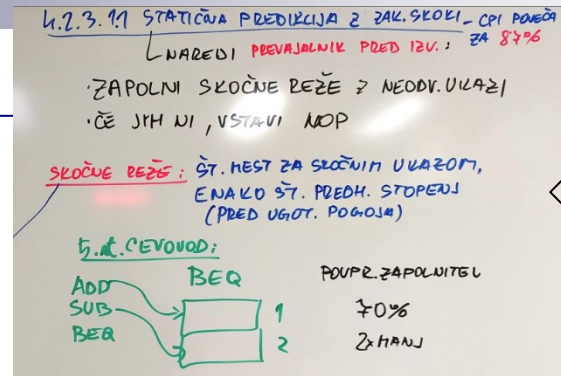 4.2.3.1.1 STATIČNA PREDIKCIJA Z ZAK. SKOKI - CPI POVEČA ZA 8.7%
NAREDI PREVAJALNIK PRED IZV.:
· ZAPOLNI SKOČNE REŽE Z NEODV. UKAZI
· ČE JIH NI, VSTAVI NOP
SKOČNE REŽE: ŠT. MEST ZA SKOČNIM UKAZOM,
ENAKO ŠT. PREDH. STOPENJ
(PRED UGOT. POGOJA)
5. st. CEVOVOD:
BEQ POVPR. ZAPOLNITEV
ADD
SUB 1 70%
BEQ 2 2x MANJ